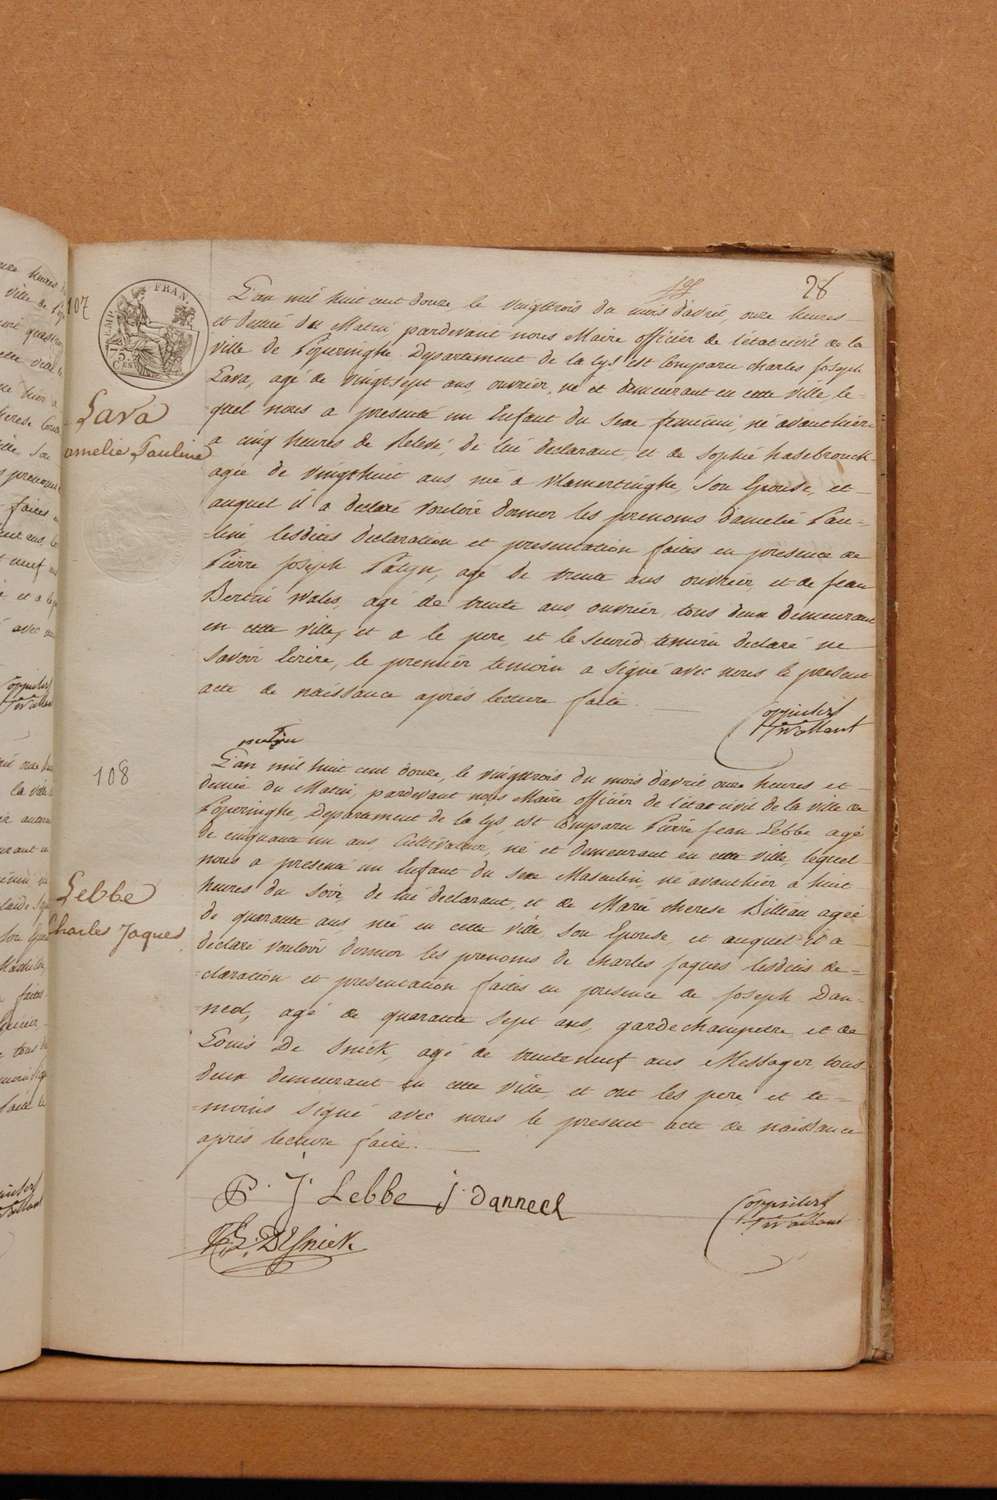 28
107
TIMB. EMP. FRAN.
Lava
amelie Pauline
L'an mil huit cent douze le vingttrois du mois d'avril, onze heures
et demie du Matin, pardevant nous Maire officier de l'état civil de la
ville de Poperinghe Departement de la Lys est Comparu charles Joseph
Lava, agé de vingtsept ans, ouvrier, né et demeurant en cette ville le-
quel nous a presenté un Enfant du sexe feminin, né avanthier
a cinq heures de Relevé, de lui déclarant, et de Sophie hasebrouck
agée de vingthuit ans, née a vlamertinghe, son Epouse, et
auquel il a déclaré vouloir donner les prenoms d'amelie Pau-
-line lesdites declaration et presentation faites en présence de
Pierre Joseph Patyn, agé de trente ans ouvrier, et de Jean
Bertin Wales, agé de trente ans, ouvrier, tous deux demeurant
en cette ville, et a le pere, et le second temoin declaré ne
savoir Ecrire, le premier temoin a signé avec nous le present
acte de naissance après lecture faite.
patyn
108
Lebbe
Charles Jaques
L'an mil huit cent douze, le vingttrois du mois d'avril onze heures et
demie du Matin, pardevant nous Maire officier de l'état civil de la ville de
Poperinghe, Departement de la Lys, est Comparu Pierre Jean Lebbe agé
de cinquante un ans Cultivateur, né et demeurant en cette ville, lequel
nous a presenté un Enfant du sexe Masculin, né avanthier a huit
heures du soir, de lui declarant, et de Marie therese Billiau agée
de quarante ans née en cette ville, son Epouse, et auquel il a
déclaré vouloir donner les prenoms de charles Jaques lesdites de-
-claration et presentation faites en presence de Joseph Dan-
-neel, agé de quarante sept ans, garde champetre, et de
Louis De Snick, agé de trenteneuf ans Messager tous
deux demeurant en cette ville, et ont les pere et te-
-moins signé avec nous le present acte de naissance
après lecture faite.
P. J. Lebbe J. Danneel
L. DESnick